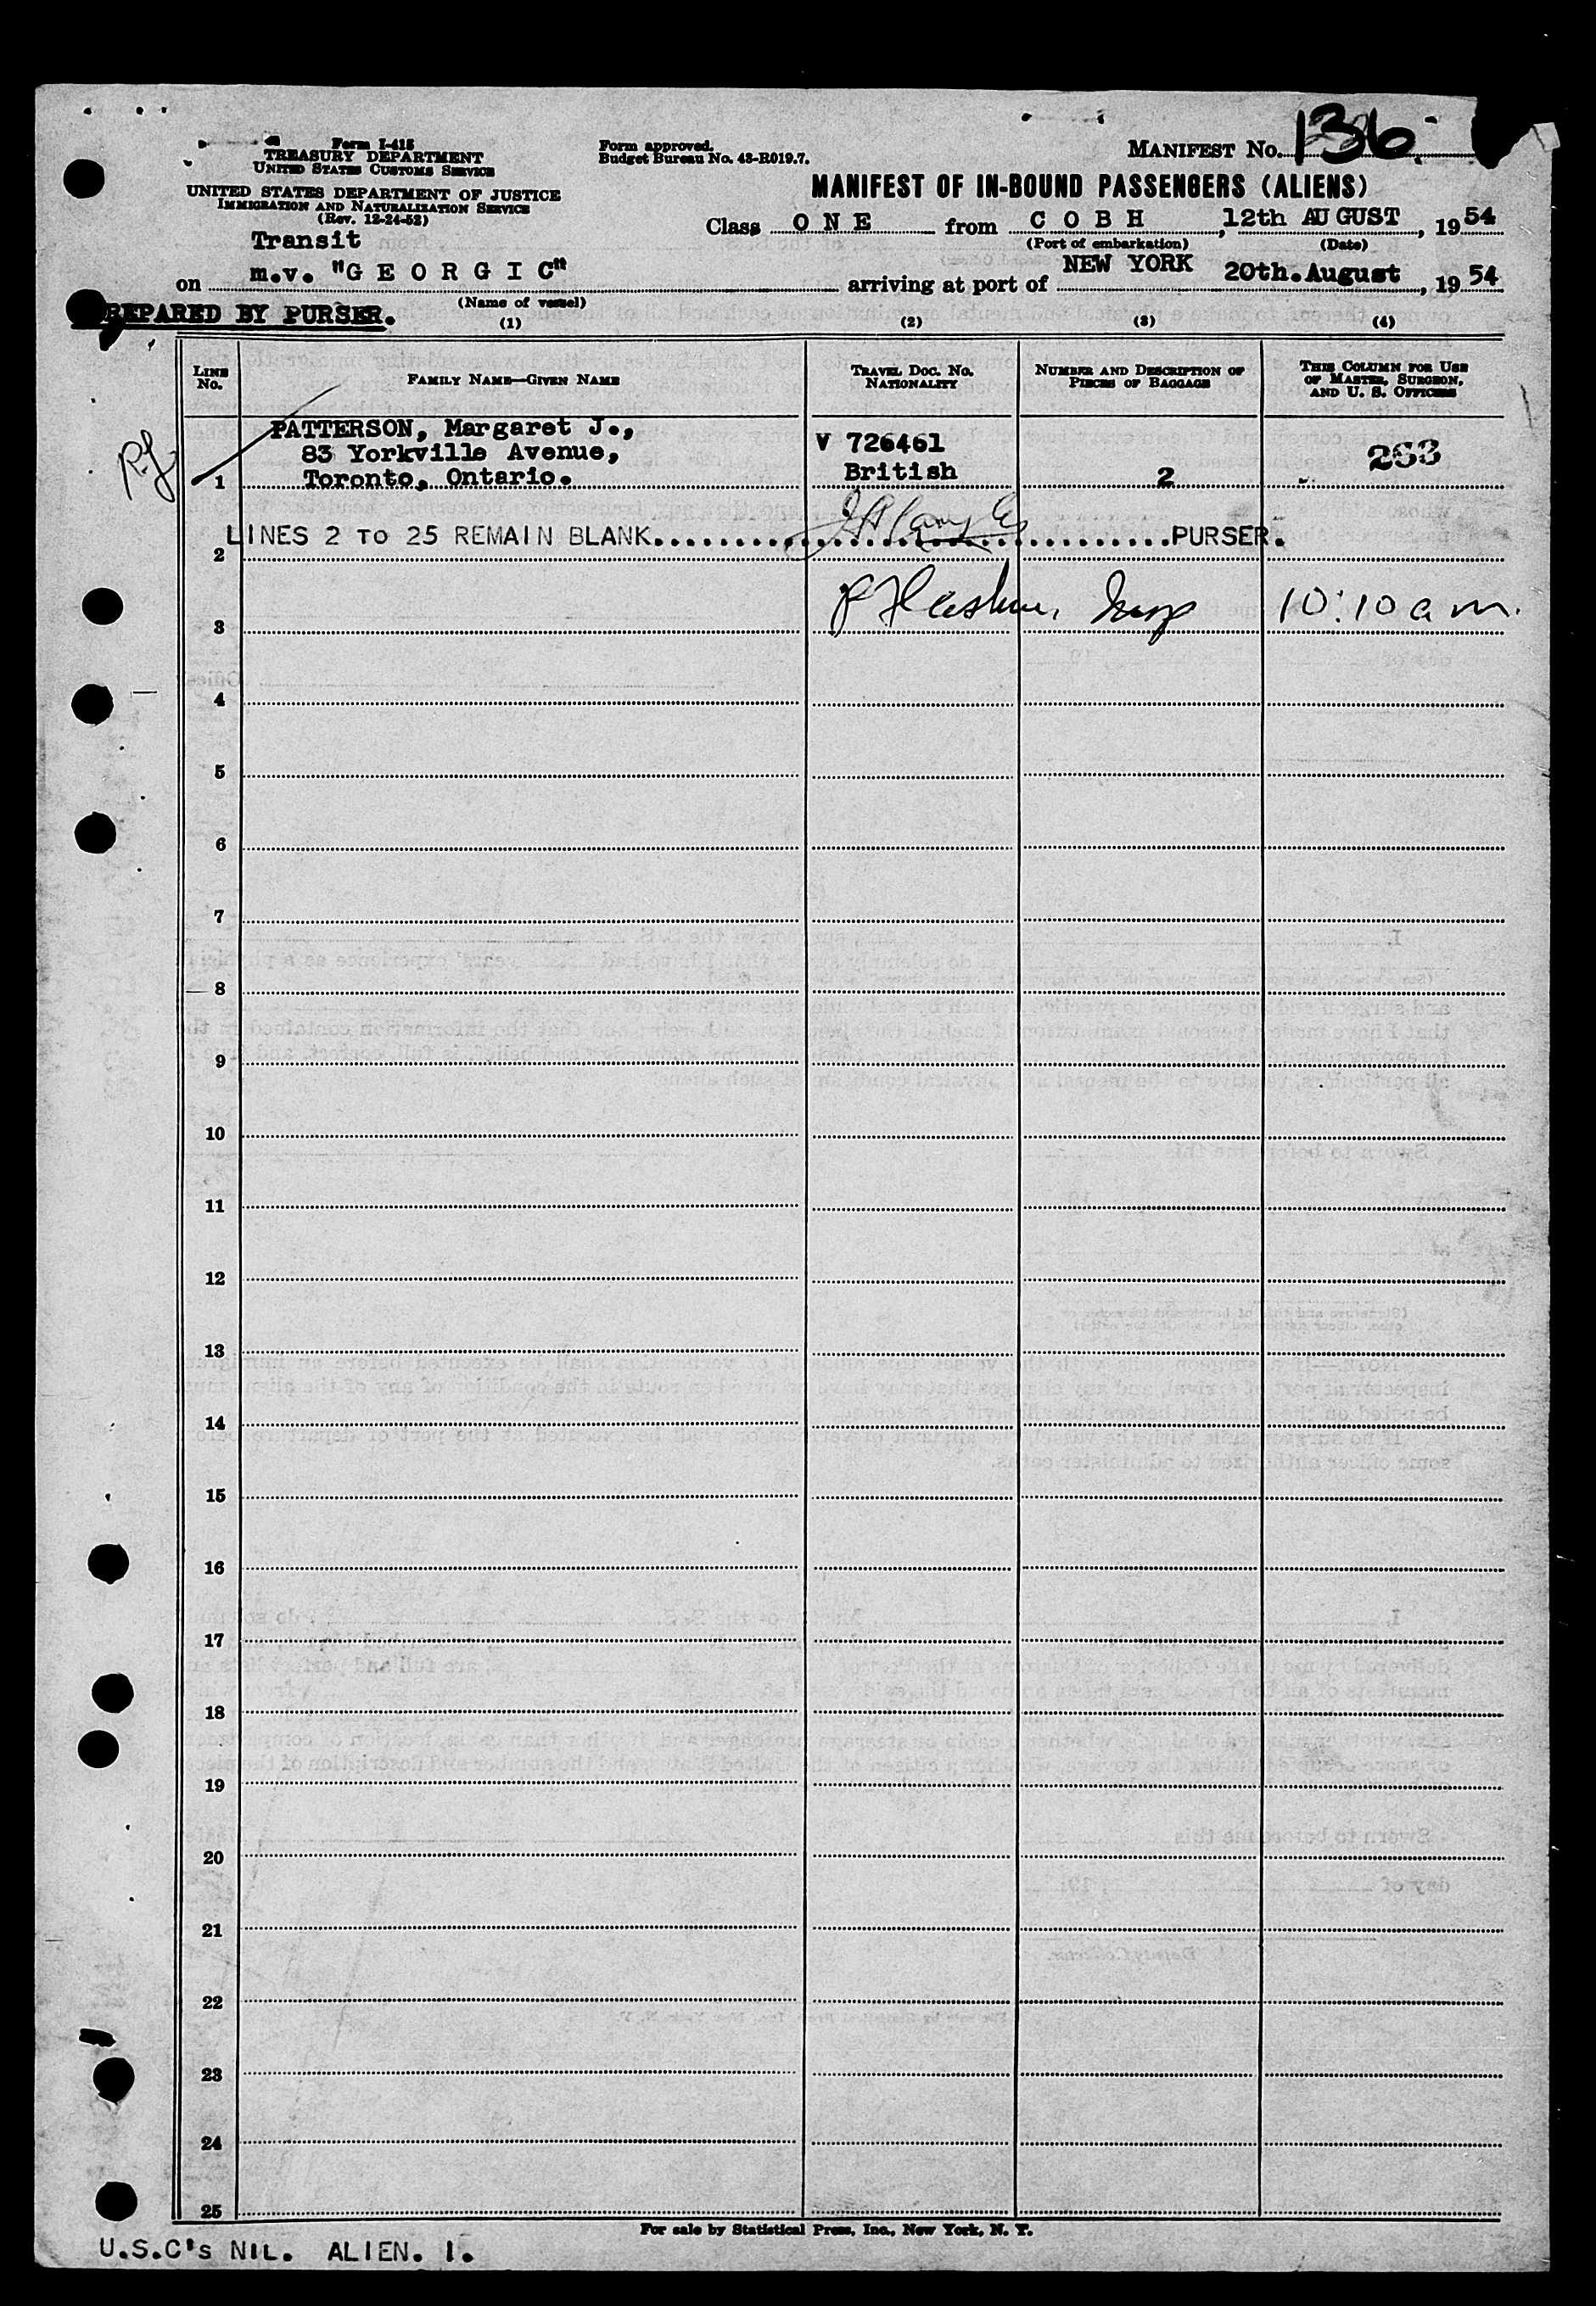 MANIFEST No. 136
Form I-415
TREASURY DEPARTMENT
UNITED STATES CUSTOMS SERVICE
Form approved.
Budget Bureau No. 43-R019.7.
UNITED STATES DEPARTMENT OF JUSTICE
IMMIGRATION AND NATURALIZATION SERVICE
(Rev. 12-24-52)
MANIFEST OF IN-BOUND PASSENGERS (ALIENS)
Class O N E from C O B H, 12th AUGUST, 1954
(Port of embarkation) (Date)
Transit
on m.v. "G E O R G I C" arriving at port of NEW YORK 20th. August, 1954
(Name of vessel)
PREPARED BY PURSER.
(1) (2) (3) (4)
LINE No. FAMILY NAME—GIVEN NAME TRAVEL DOC. No. NATIONALITY NUMBER AND DESCRIPTION OF PIECES OF BAGGAGE THIS COLUMN FOR USE OF MASTER, SURGEON, AND U. S. OFFICERS
PATTERSON, Margaret J.,
83 Yorkville Avenue, V 726461 263
1 Toronto, Ontario. British 2
LINES 2 TO 25 REMAIN BLANK PURSER.
2
3 10:10 a m.
4
5
6
7
8
9
10
11
12
13
14
15
16
17
18
19
20
21
22
23
24
25
For sale by Statistical Press, Inc., New York, N. Y.
U.S.C's NIL. ALIEN. 1.